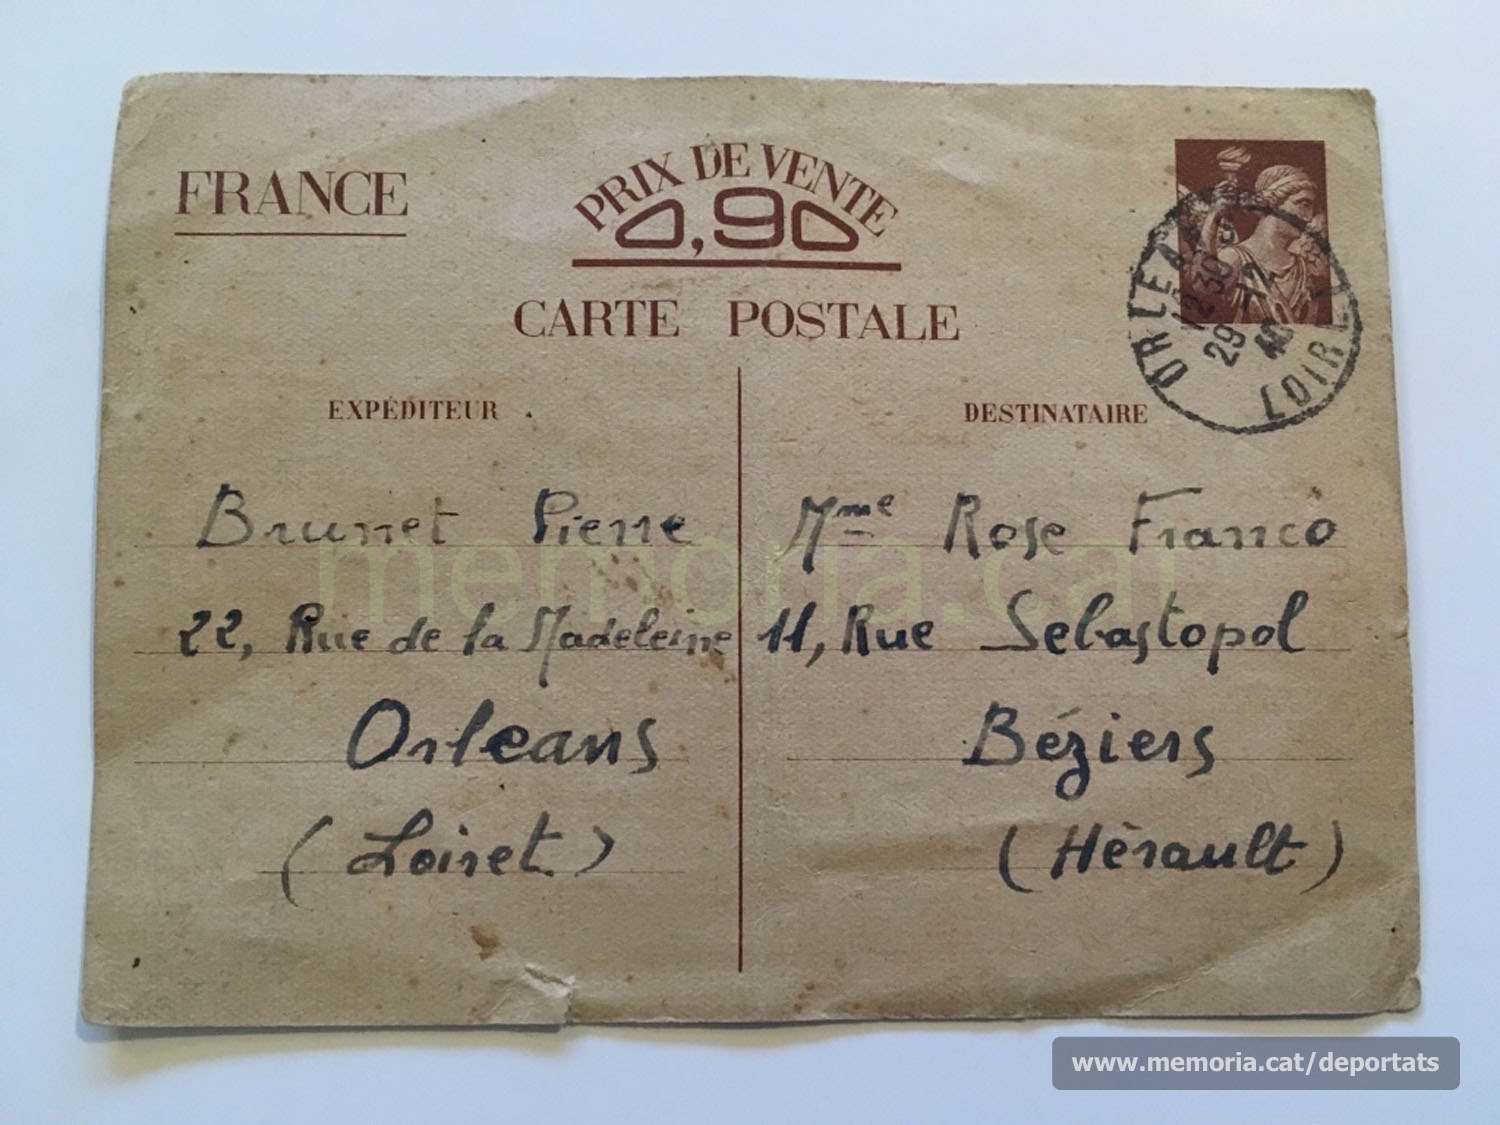 FRANCE
PRIX DE VENTE
0,90
CARTE POSTALE
ORLEANS
12 30
29 -12
40
LOIRET
EXPÉDITEUR
Brunet Pierre
22, Rue de la Madeleine
Orleans
(Loiret)
DESTINATAIRE
Mme Rose Franco
11, Rue Sebastopol
Béziers
(Hérault)
memoria.cat
www.memoria.cat/deportats